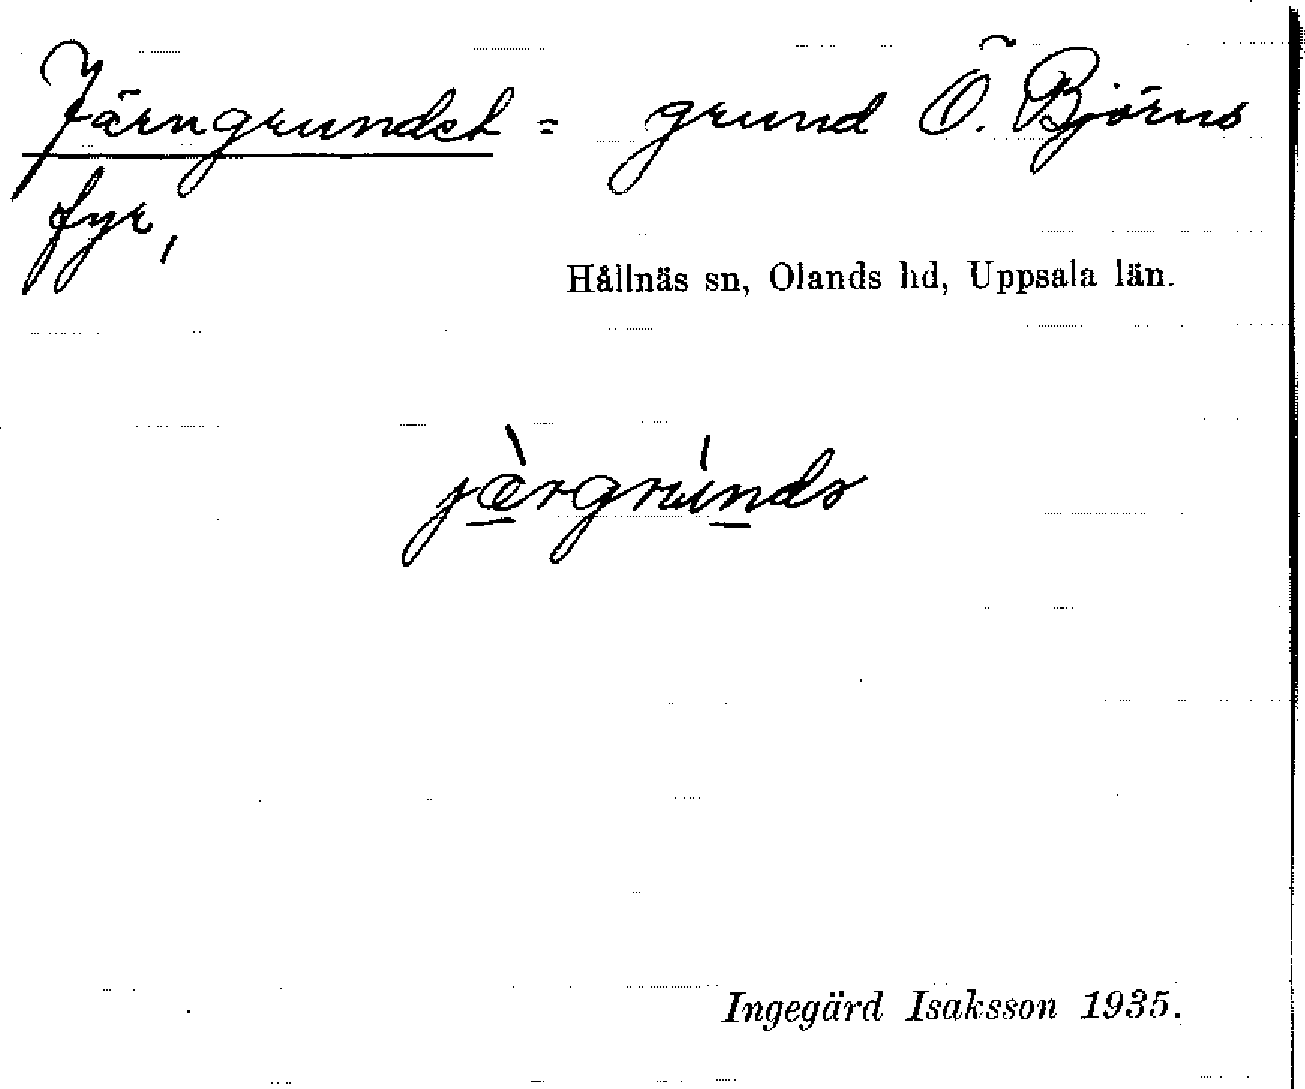 Järngrundet = grund Ö. Björns
fyr,
Hållnäs sn, Olands hd, Uppsala län.
jæ̀rgrúnds
Ingegärd Isaksson 1935.